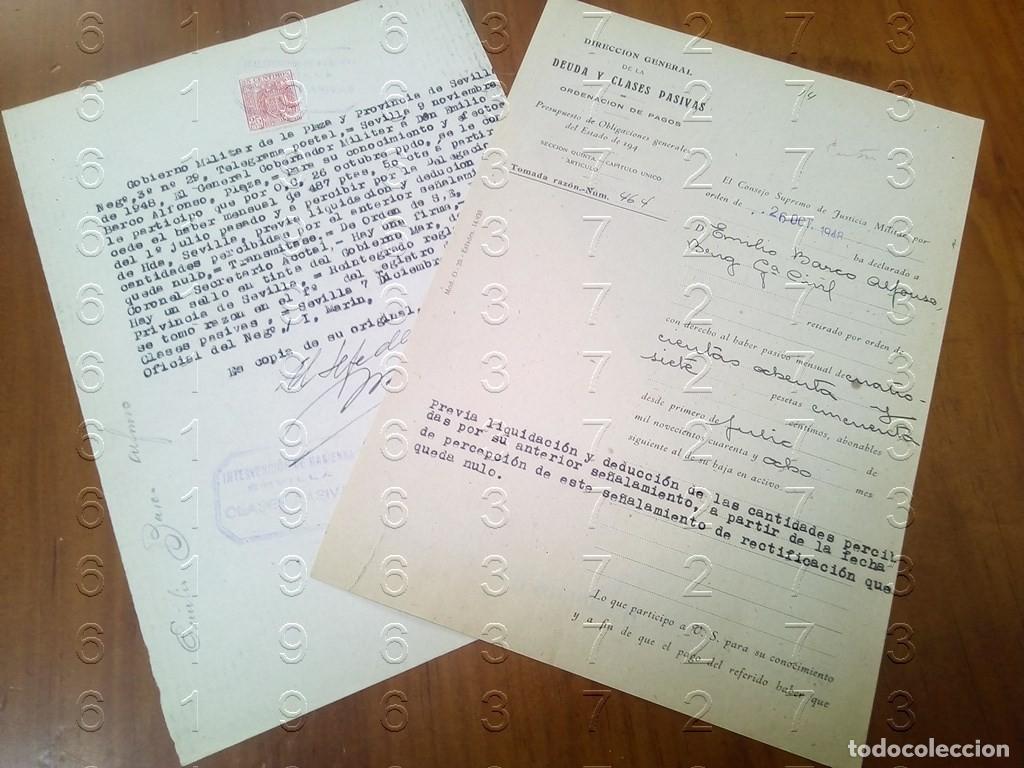 25 CENTIMOS
25
Gobierno Militar de la Plaza y Provincia de Sevilla
Nego, 3º nº 29, Telegrama postal.= Sevilla 9 noviembre
de 1948, El General Gobernador Militar á Don Emilio
Barco Alfonso, Plaza,= Para su conocimiento y efectos
le participo que por O, C, 26 octubre pdo, se le con
cede el haber mensual de 487 ptas, 50 cto, á partir
del 1º julio pasado y á percibir por la Delegacio
de Hda, Sevilla, previa liquidacion y deducion
cantidades percibidas por el anterior señalami
queda nulo,= Transmitase,= De Orden de S, E,
Coronel Secretario Acctal,= Hay una firma,=
Hay un sello en tinta del Gobierno Mar, =
Provincia de Sevilla, = Reintegrado regl
se tomo razon en el fº del registro
Clases pasivas ,= Sevilla 7 Diciembre
Oficial del Nego,= I, Marin,
Es copia de su original,
El Jefe de
INTERVENCIÓN DE HACIENDA
SEVILLA
CLASES PASIVAS
Emilio Barco
Alfonso
DIRECCION GENERAL
DE LA
DEUDA Y CLASES PASIVAS
ORDENACION DE PAGOS
Presupuesto de Obligaciones generales
del Estado de 194
SECCION QUINTA.-CAPITULO UNICO
ARTICULO
Tomada razón.-Núm. 464
El Consejo Supremo de Justicia Militar, por
orden de 26 OCT. 1948
ha declarado a
D Emilio Barco Alfonso,
Berg Gª Civil
retirado por orden de
con derecho al haber pasivo mensual de cuatro-
cientas ochenta y
siete pesetas cincuenta
céntimos, abonables
desde primero de julio de
mil novecientos cuarenta y ocho mes
siguiente al de su baja en activo.
Previa liquidación y deducción de las cantidades perci
das por su anterior señalamiento, a partir de la fecha
de percepción de este señalamiento de rectificación que
queda nulo.
Lo que participo a V. S. para su conocimiento
y a fin de que el pago del referido haber que
6 1 9 6 3 7 2 7 3
todocoleccion